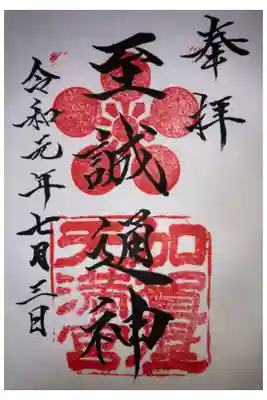 奉拝
至誠通神
令和元年七月三日
加賀豊
天満宮